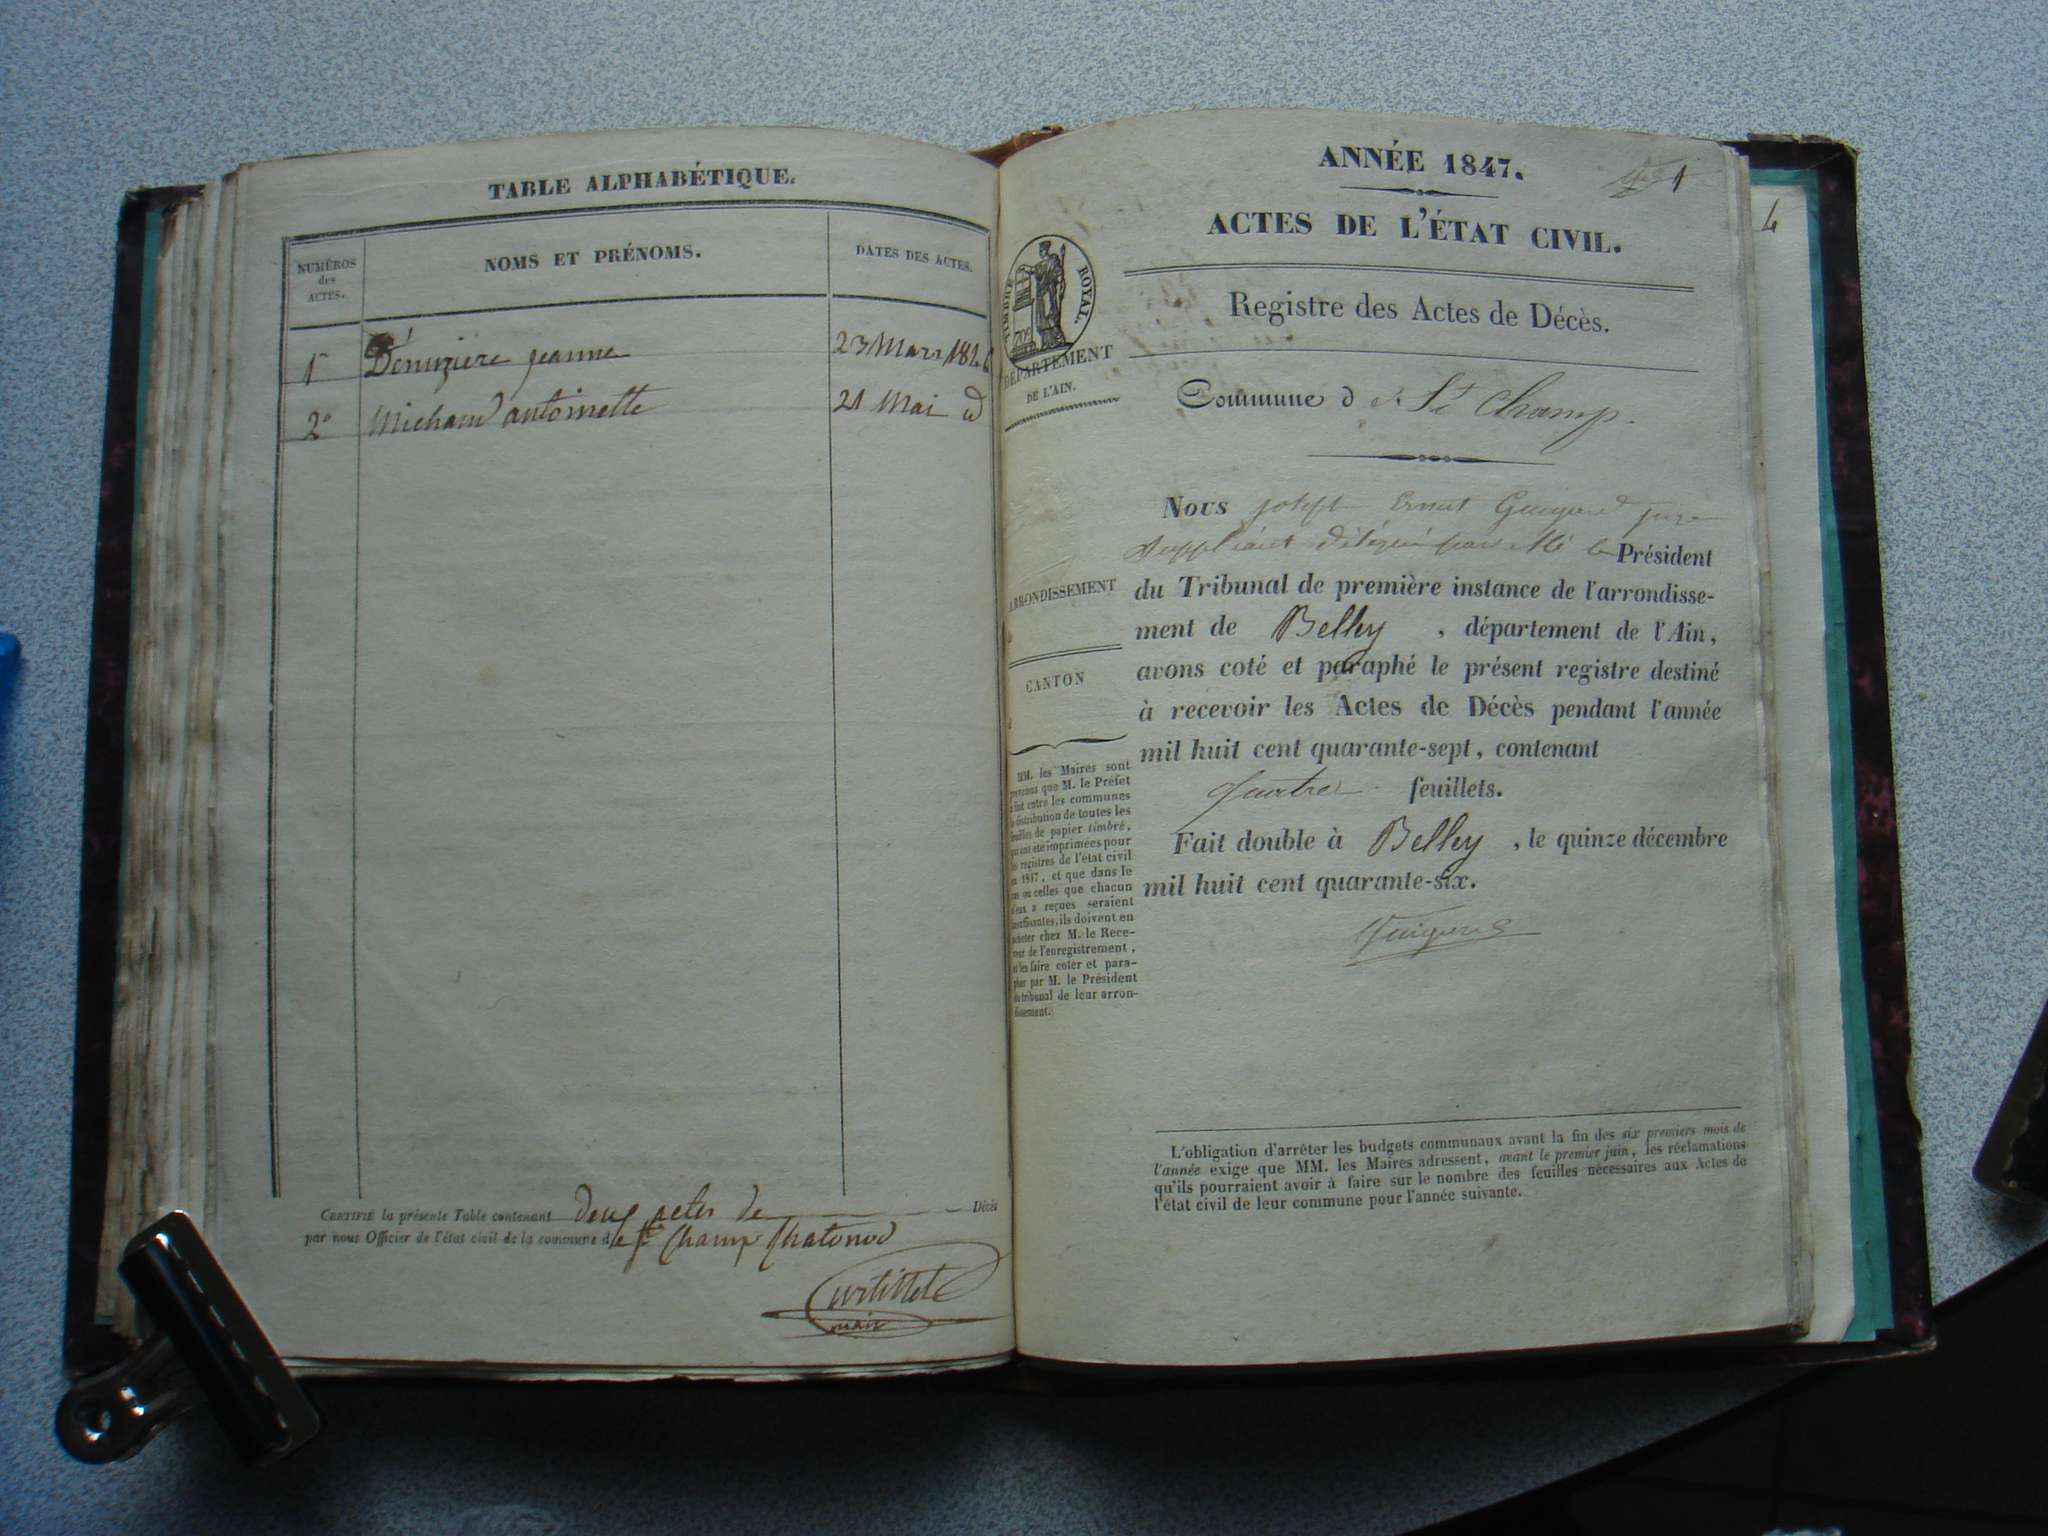 TABLE ALPHABÉTIQUE.
NUMÉROS
des
ACTES.
NOMS ET PRÉNOMS.
DATES DES ACTES.
1° Dénuzière jeanne 23 Mars 1846
2° Michaud antoinette 21 Mai id
CERTIFIÉ la présente Table contenant deux actes de Décès
par nous Officier de l'état civil de la commune de St Champ Chatonod
Curtillet
maire
ANNÉE 1847.
1
ACTES DE L'ÉTAT CIVIL.
TIMBRE ROYAL.
Registre des Actes de Décès.
DÉPARTEMENT
DE L'AIN.
Commune d e St Champ.
ARRONDISSEMENT
CANTON
MM. les Maires sont
prévenus que M. le Préfet
a fait entre les communes
la distribution de toutes les
feuilles de papier timbré,
qui ont été imprimées pour
les registres de l'état civil
en 1847, et que dans le
cas où celles que chacun
d'eux a reçues seraient
insuffisantes, ils doivent en
acheter chez M. le Rece-
veur de l'enregistrement,
et les faire coter et para-
pher par M. le Président
du tribunal de leur arron-
dissement.
Nous joseph Ernest Guigard juge
suppléant délégué par Mr le Président
du Tribunal de première instance de l'arrondisse-
ment de Belley , département de l'Ain,
avons coté et paraphé le présent registre destiné
à recevoir les Actes de Décès pendant l'année
mil huit cent quarante-sept, contenant
quatre feuillets.
Fait double à Belley , le quinze décembre
mil huit cent quarante-six.
L'obligation d'arrêter les budgets communaux avant la fin des six premiers mois de
l'année exige que MM. les Maires adressent, avant le premier juin, les réclamations
qu'ils pourraient avoir à faire sur le nombre des feuilles nécessaires aux Actes de
l'état civil de leur commune pour l'année suivante.
4